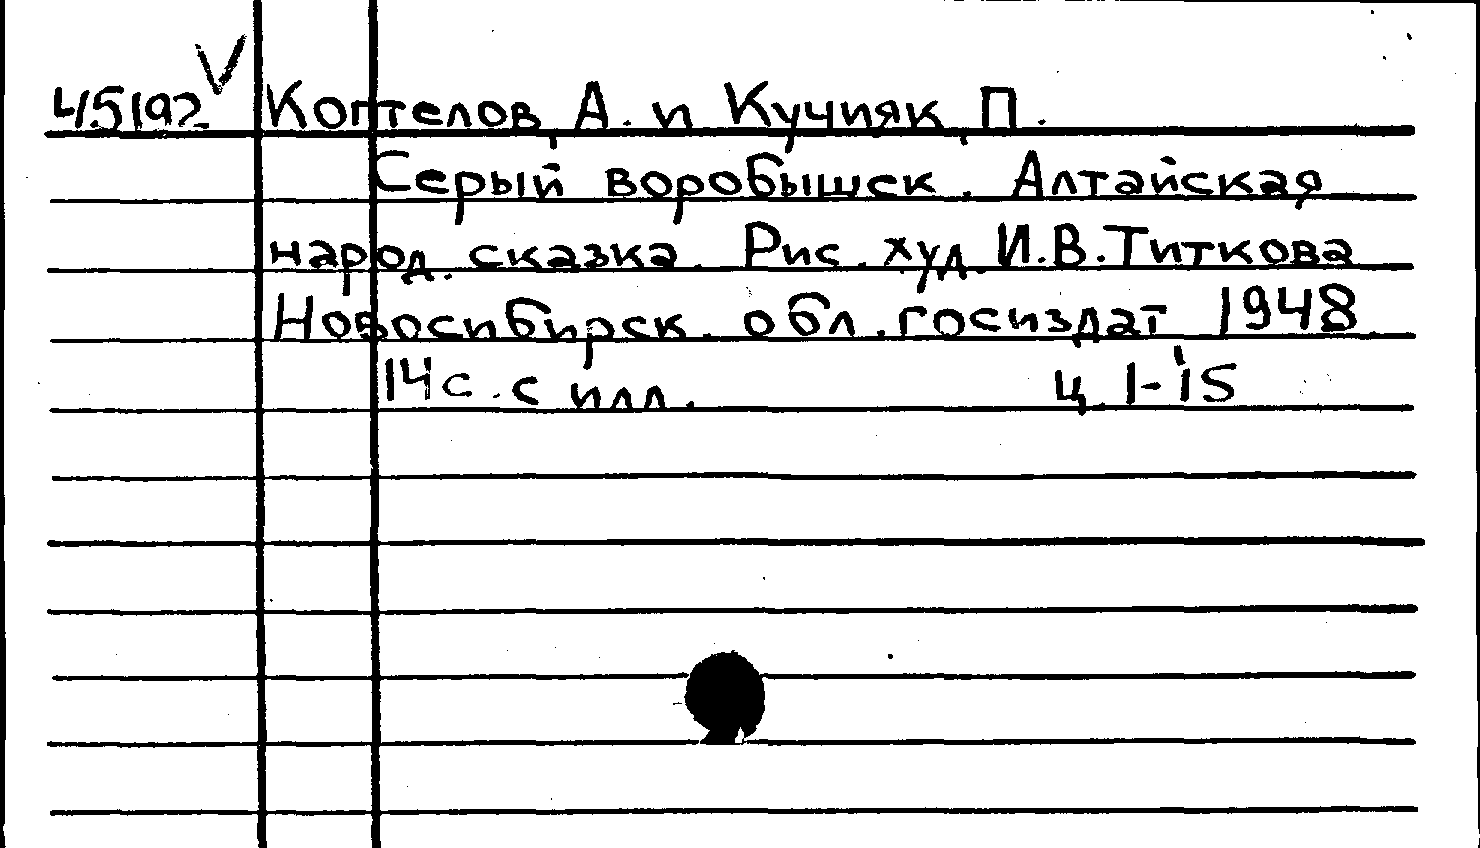 45192 V Коптелов, А. и Кучияк, П.
Серый воробышек. Алтайская
народ. сказка. Рис. худ. И.В. Титкова
Новосибирск. обл. госиздат 1948
14с. с илл. ц. 1-15